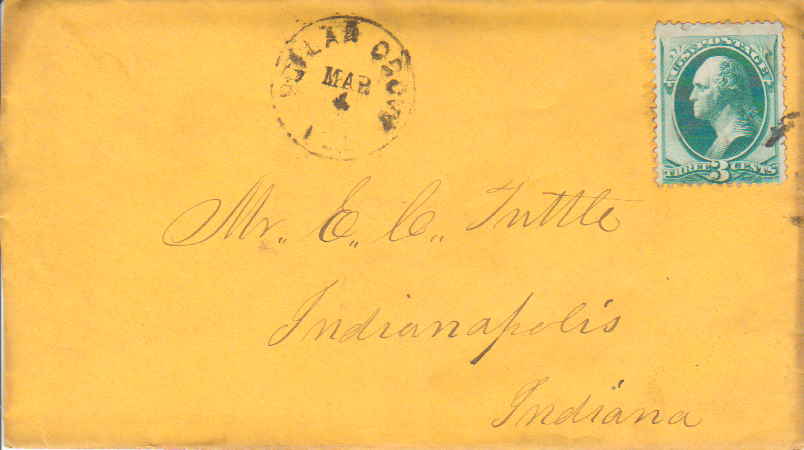 MAR
4
U.S. POSTAGE
THREE 3 CENTS
Mr. E. C. Tuttle
Indianapolis
Indiana